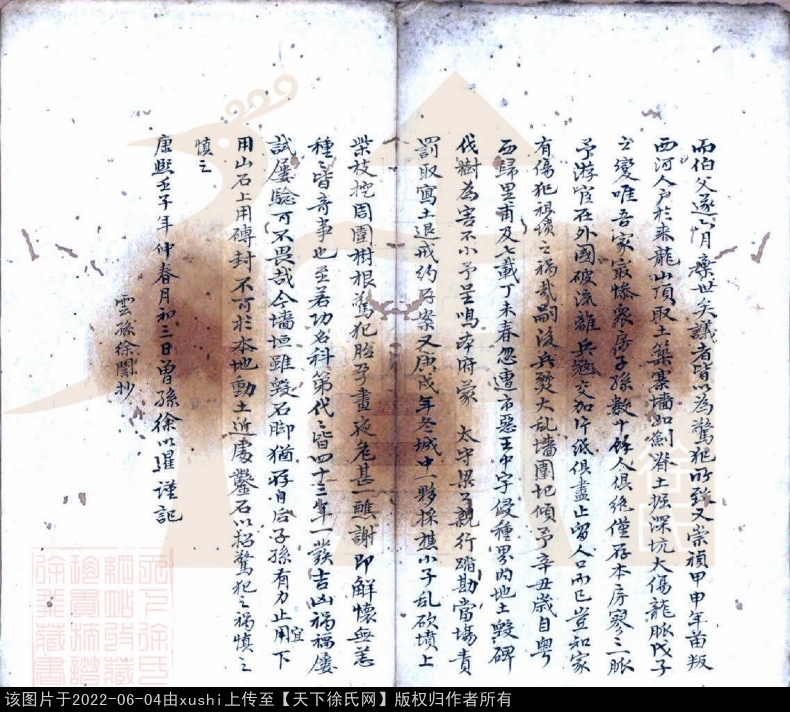 而伯父遂六月棄世矣議者皆以為驚犯所致又崇禎甲申年苗叛
西河人户於来龍山頂取土築寨墙如劍脊土掘深坑大傷龍脈戊子
之變唯吾家最慘衆房子孫數十餘人俱絶僅存本房寥々一脈
予游宦在外國破流離兵寇交加片紙俱盡止留人口而已豈知家
有傷犯祖墳之禍哉嗣後兵燹大亂墙圍圮傾予辛丑歲自粤
西歸里甫及六載丁未春忽遭市惡王中字侵種界内地土毀碑
伐樹為害不小予呈鳴本府蒙 太守梁公親行踏勘當塲責
罰取寫土退戒約存案又庚戌年冬城中一夥採樵小子乱砍墳上
柴枝挖周圍樹根驚犯胎孕晝夜危甚一醮謝即解懷無恙
種々皆竒事也至若功名科第代々皆四十三年一發吉凶禍福屢
試屢驗可不畏哉今墻垣雖毀石脚猶存自后子孫有力止宜用下
用山石上用磚封不可於本地動土近處鑿石以招驚犯之禍慎之
慎之
康熙壬子年仲春月初三日曽孫徐以暹謹記
雲孫徐閣抄
徐氏
天下徐氏網站收藏珍貴譜牒徐業藏書
该图片于2022-06-04由xushi上传至【天下徐氏网】版权归作者所有